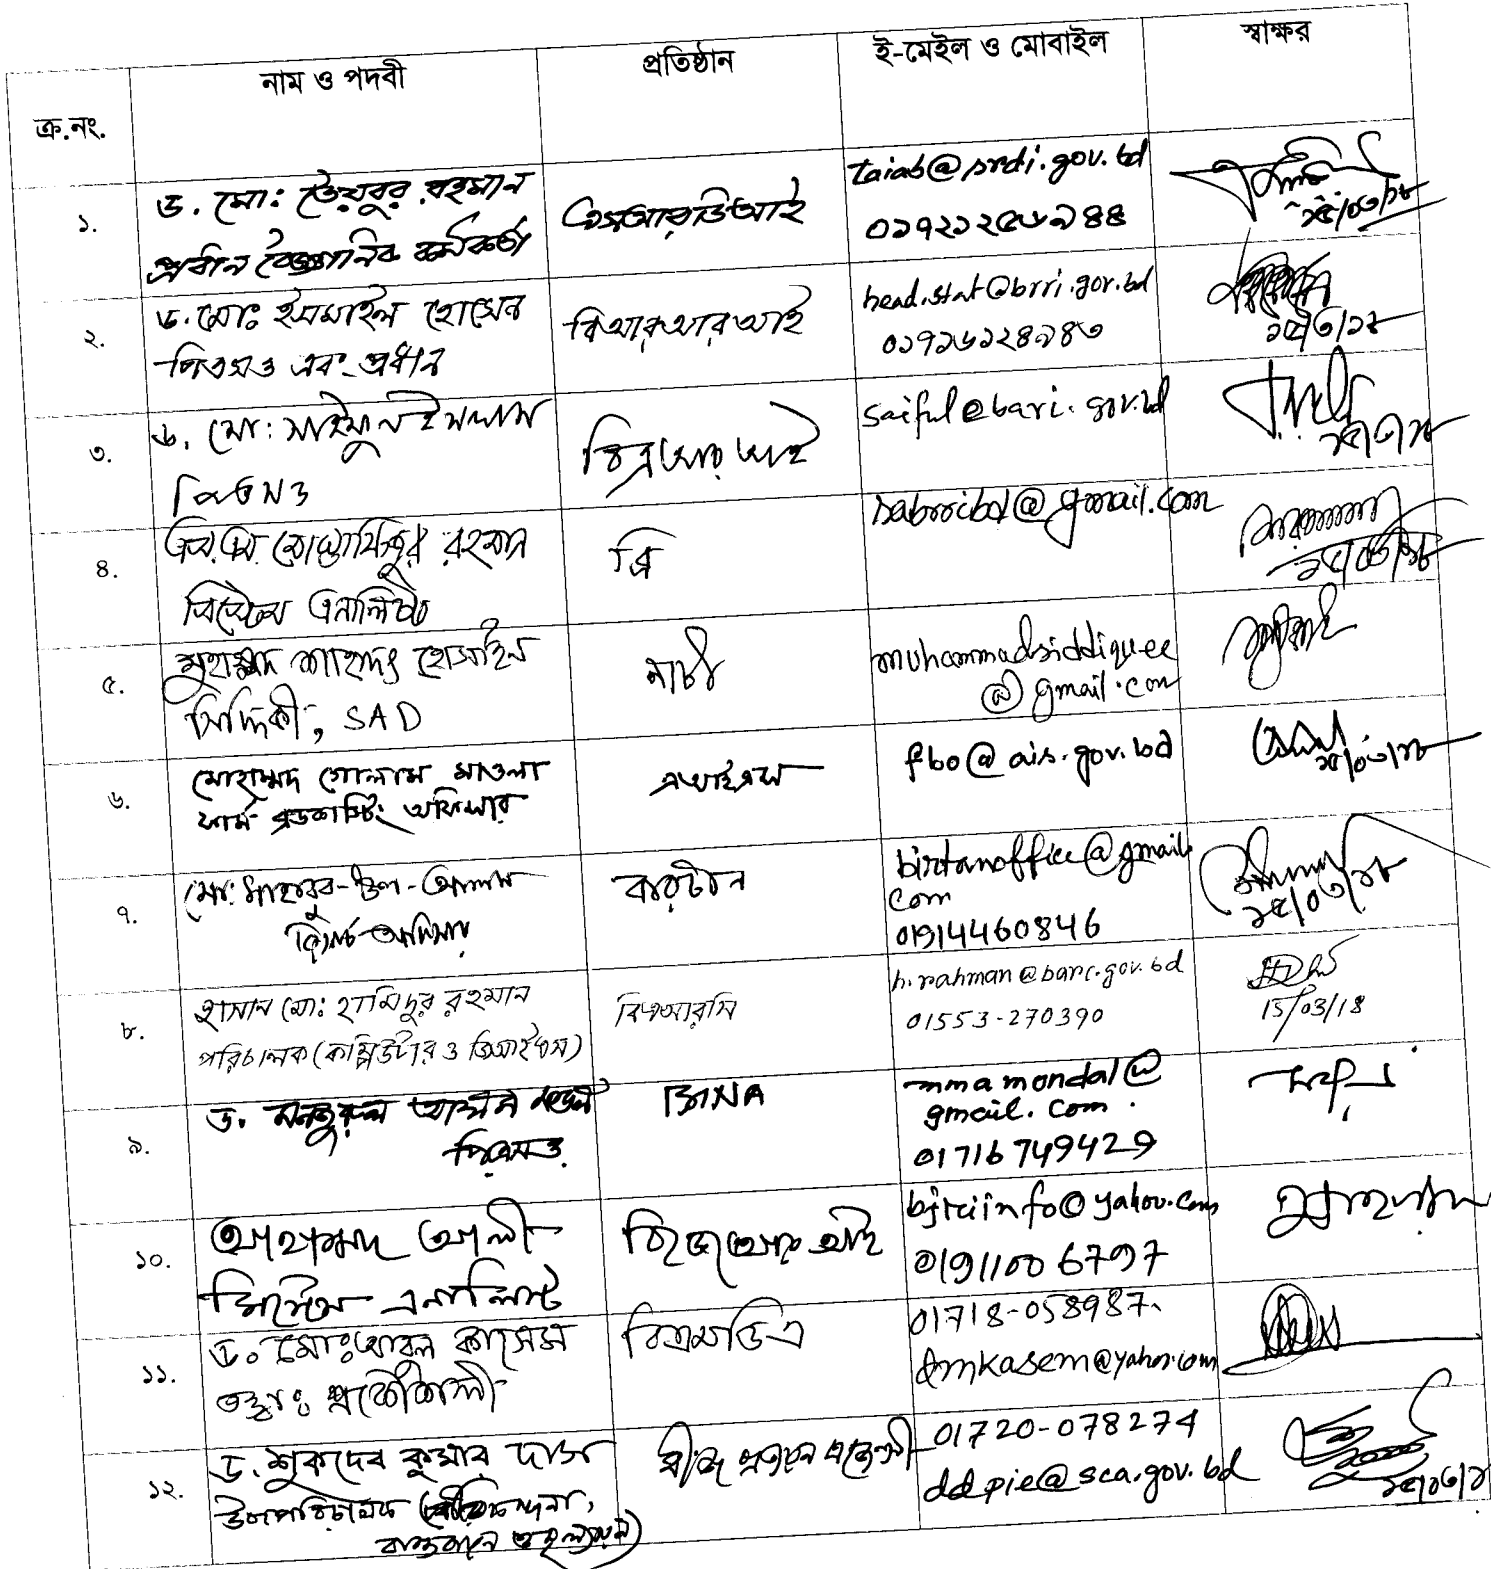 ক্র.নং.
নাম ও পদবী
প্রতিষ্ঠান
ই-মেইল ও মোবাইল
স্বাক্ষর
১.
ড. মো: তৈয়বুর রহমান
প্রধান বৈজ্ঞানিক কর্মকর্তা
এসআরডিআই
taiab@srdi.gov.bd
০১৭১১২৫৬১৪৪
১৫/০৩/১৮
২.
ড. মোঃ ইসমাইল হোসেন
পিএসও এবং প্রধান
বিআরআরআই
head.stat@brri.gov.bd
০১৭১৬১২৪১৪৩
১৫/৩/১৮
৩.
ড. মো: সাইফুল ইসলাম
পিএসও
বিএআরআই
saiful@bari.gov.bd
১৫/৩/১৮
৪.
এস.এম. মোস্তাফিজুর রহমান
সিস্টেম এনালিস্ট
ব্রি
sabrribd@gmail.com
১৫/০৩/১৮
৫.
মুহাম্মদ শাহাদৎ হোসাইন
সিদ্দিকী, SAD
নাটা
muhammadsiddiquee
@gmail.com
৬.
মোহাম্মদ গোলাম মাওলা
ফার্ম ব্রডকাস্টিং অফিসার
এআইএস
fbo@ais.gov.bd
১৫/০৩/১৮
৭.
মো: মাহাবুব-উল-আলম
রিসার্চ অফিসার
বারটান
birtanoffice@gmail.
com
01914460846
১৫/০৩/১৮
৮.
হাসান মো: হামিদুর রহমান
পরিচালক (কম্পিউটার ও জিআইএস)
বিএআরসি
h.rahman@barc.gov.bd
01553-270390
15/03/18
৯.
ড. মনজুরুল আলম মন্ডল
পিএসও
BINA
mmamondal@
gmail.com.
01716749429
১০.
আহাম্মদ আলী
সিস্টেম এনালিস্ট
বিজেআরআই
bjriinfo@yahoo.com
01911006797
১১.
ড. মোঃ আবুল কাসেম
তত্ত্বাঃ প্রকৌশলী
বিএমডিএ
01718-058987
dmkasem@yahoo.com
১২.
ড. শুকদেব কুমার দাস
উপপরিচালক (পরিকল্পনা,
বাস্তবায়ন ও মূল্যায়ন)
বীজ প্রত্যয়ন এজেন্সী
01720-078274
ddpie@sca.gov.bd
১৫/০৩/১৮